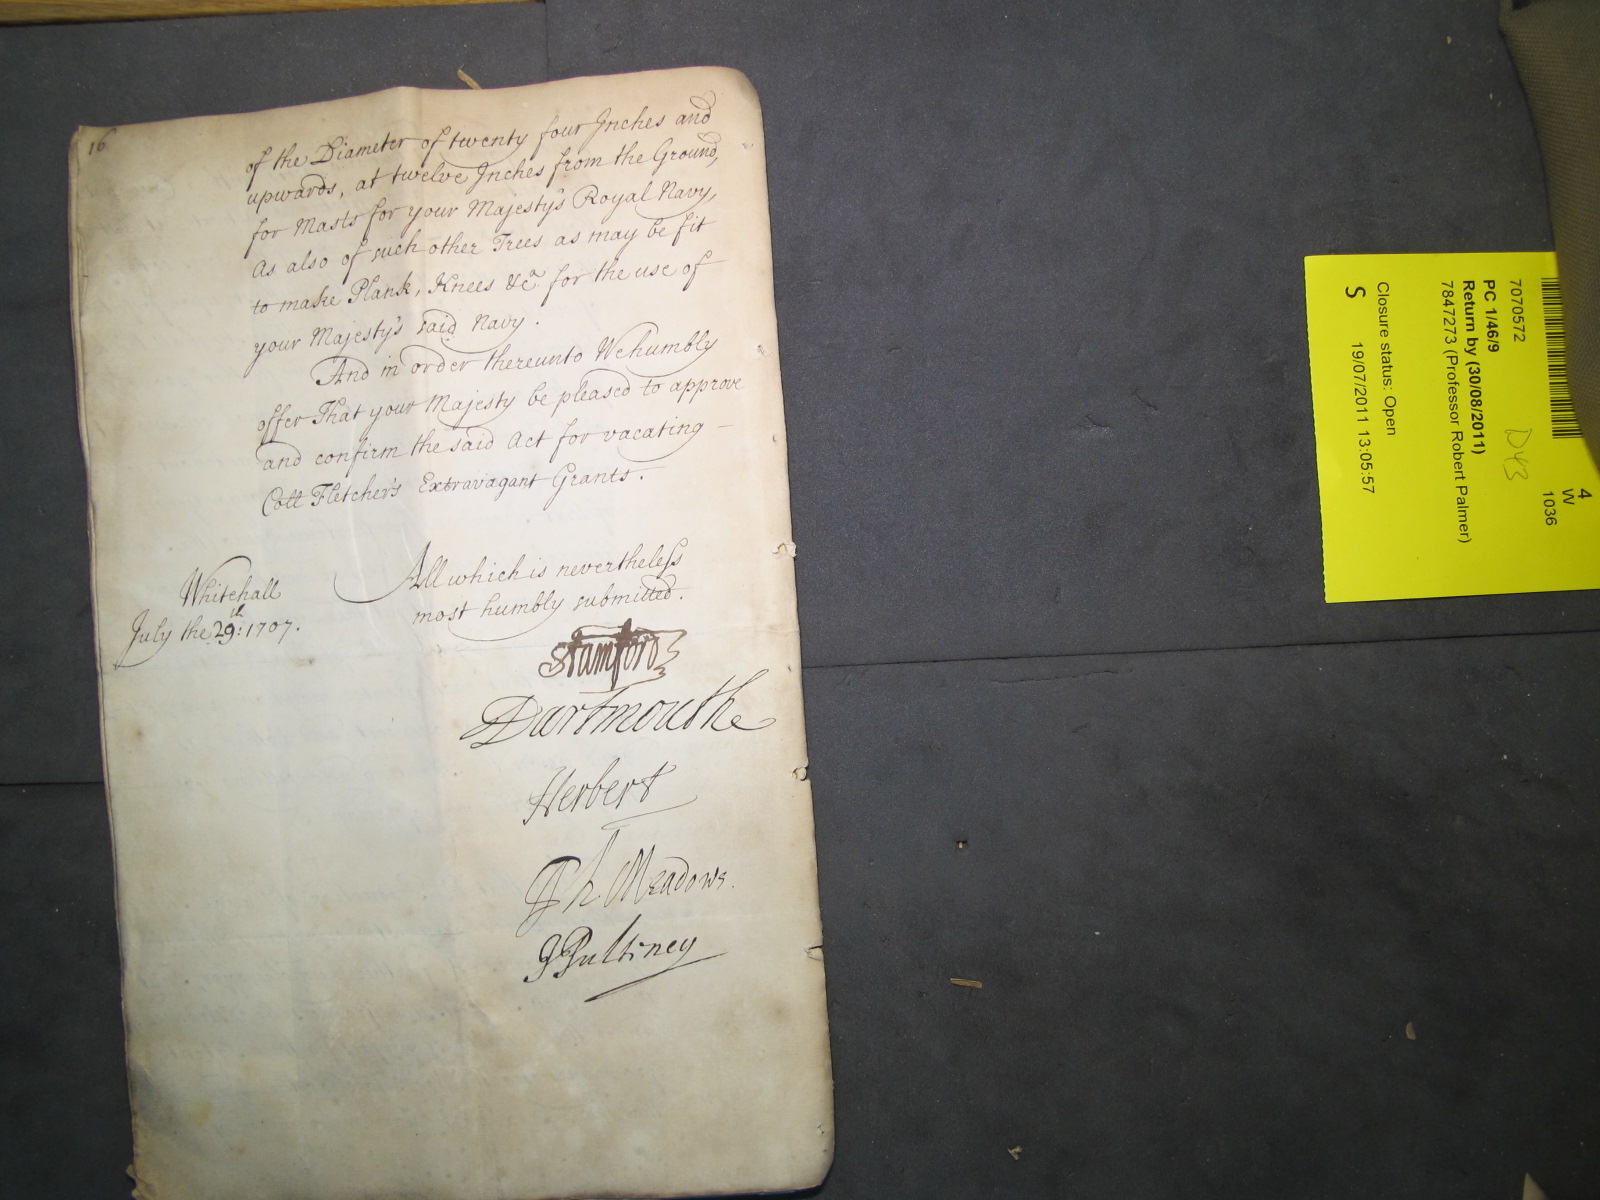 16
of the Diameter of twenty four Inches and
upwards, at twelve Inches from the Ground,
for Masts for your Majesty's Royal Navy,
As also of such other Trees as may be fit
to make Plank, Knees &ca. for the use of
your Majesty's said Navy.
And in order thereunto We humbly
offer That your Majesty be pleased to approve
and confirm the said Act for vacating –
Coll Fletcher's Extravagant Grants.
All which is nevertheless
most humbly submitted.
Whitehall
July the 29th: 1707.
Stamford
Dartmouthe
Herbert
Ph. Meadows.
J Pulteney
4
W
1036
D43
7070572
PC 1/46/9
Return by (30/08/2011)
7847273 (Professor Robert Palmer)
Closure status: Open
S 19/07/2011 13:05:57